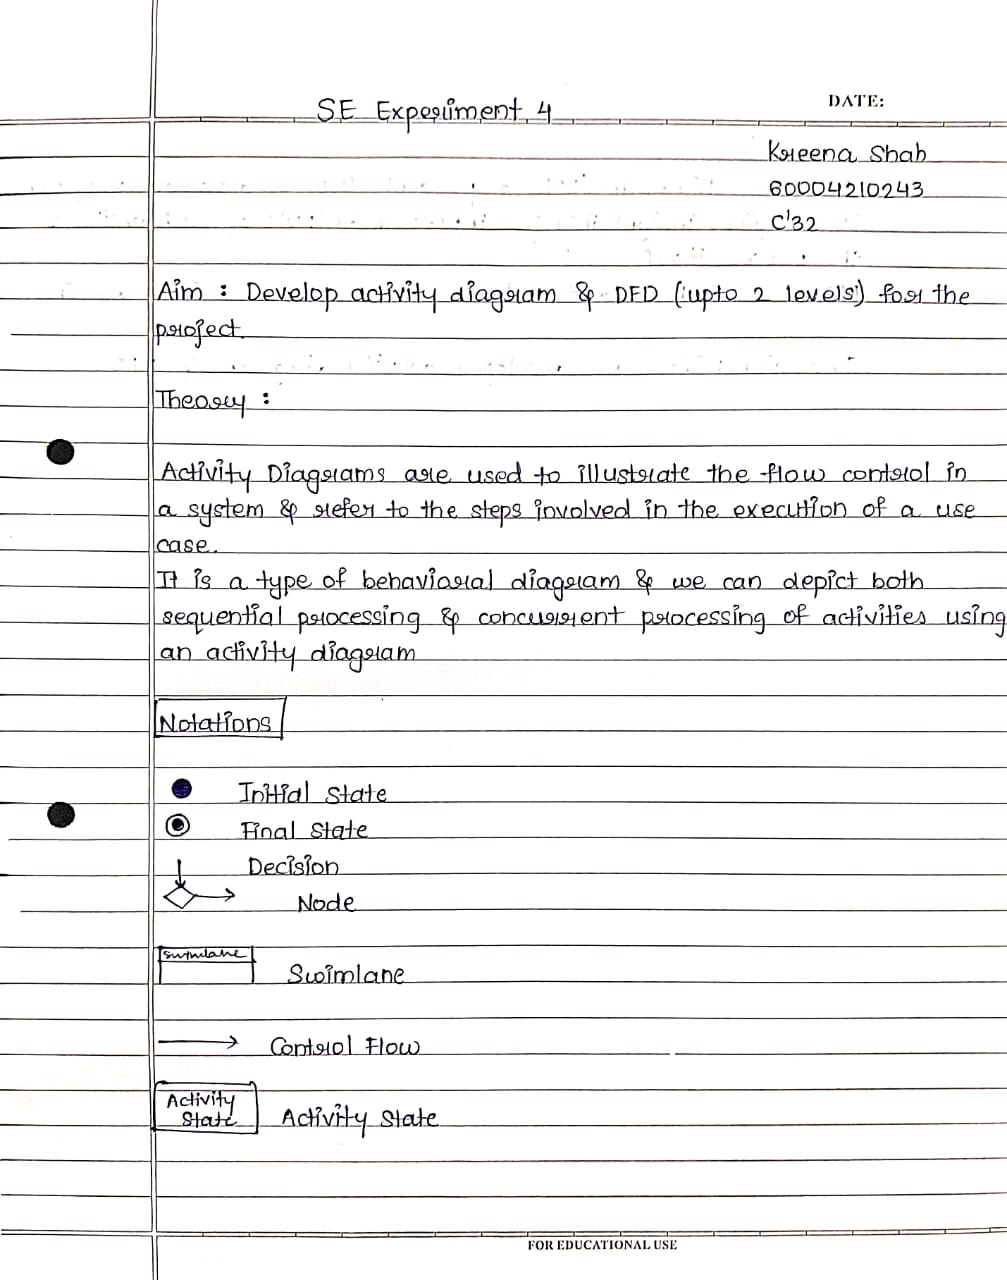 DATE:
SE Experiment 4
Kreena Shah
60004210243
C'32
Aim : Develop activity diagram & DFD (upto 2 levels) for the
project.
Theory :
Activity Diagrams are used to illustrate the flow control in
a system & refer to the steps involved in the execution of a use
case.
It is a type of behavioral diagram & we can depict both
sequential processing & concurrent processing of activities using
an activity diagram
Notations
Initial State
Final State
Decision
Node
Swimlane
Swimlane
Control Flow
Activity
State
Activity State
FOR EDUCATIONAL USE